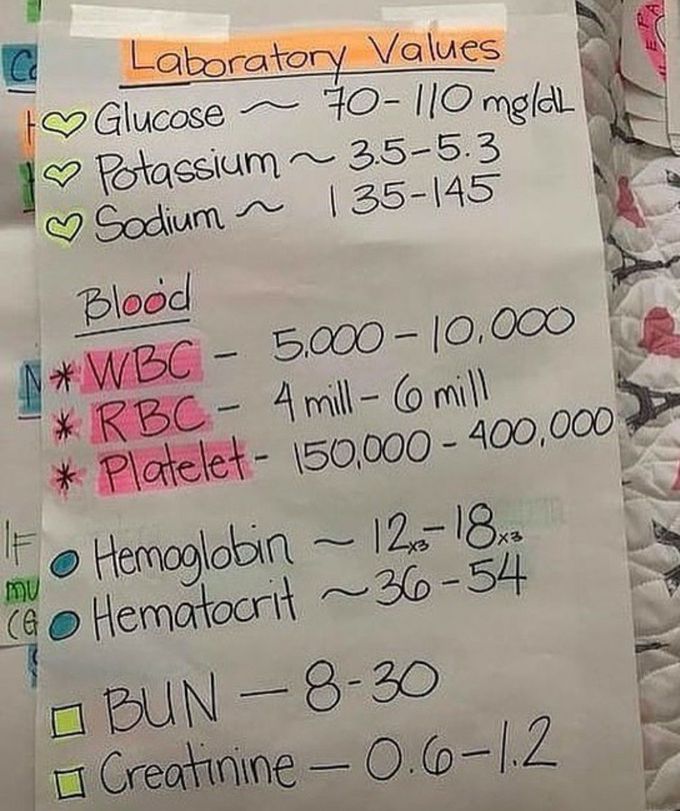 Laboratory Values
Glucose ~ 70-110 mg/dL
Potassium ~ 3.5-5.3
Sodium ~ 135-145
Blood
* WBC - 5,000 - 10,000
* RBC - 4 mill - 6 mill
* Platelet - 150,000 - 400,000
Hemoglobin ~ 12x3 - 18x3
Hematocrit ~ 36 - 54
BUN - 8-30
Creatinine - 0.6-1.2
IF
mu